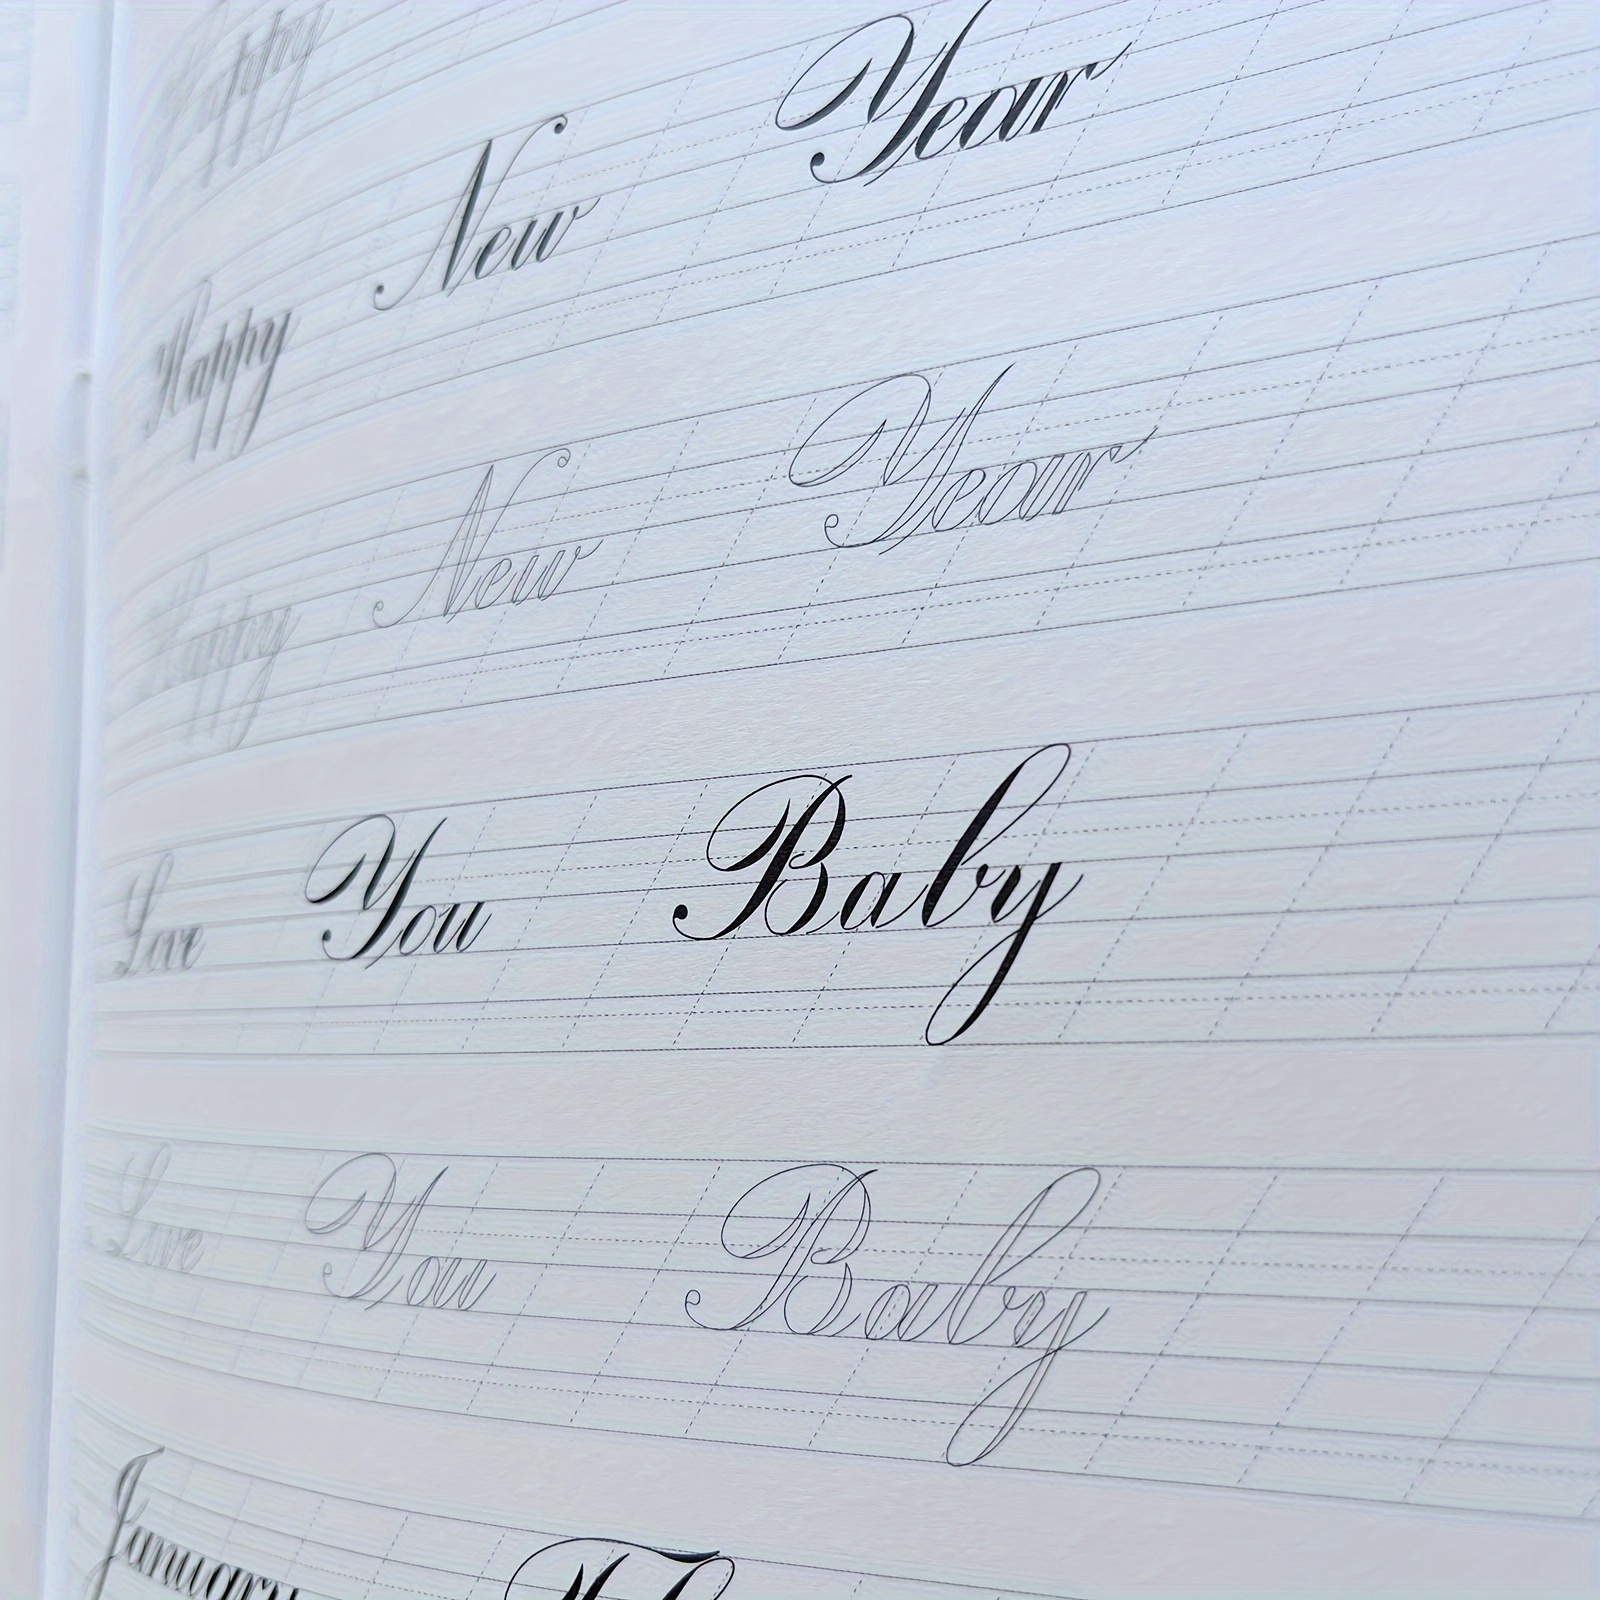 Happy
Happy New Year
Happy New Year
Love You Baby
Love You Baby
January